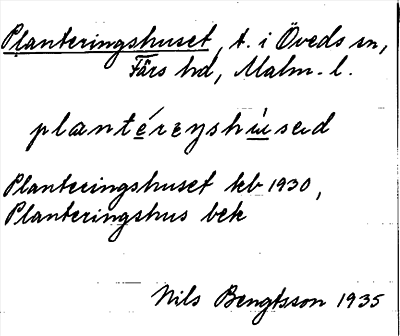 Planteringshuset, t. i Öveds sn,
Färs hd, Malm. l.
plantéreŋshu̇́səd
Planteringshuset kb 1930,
Planteringshus bek
Nils Bengtsson 1935